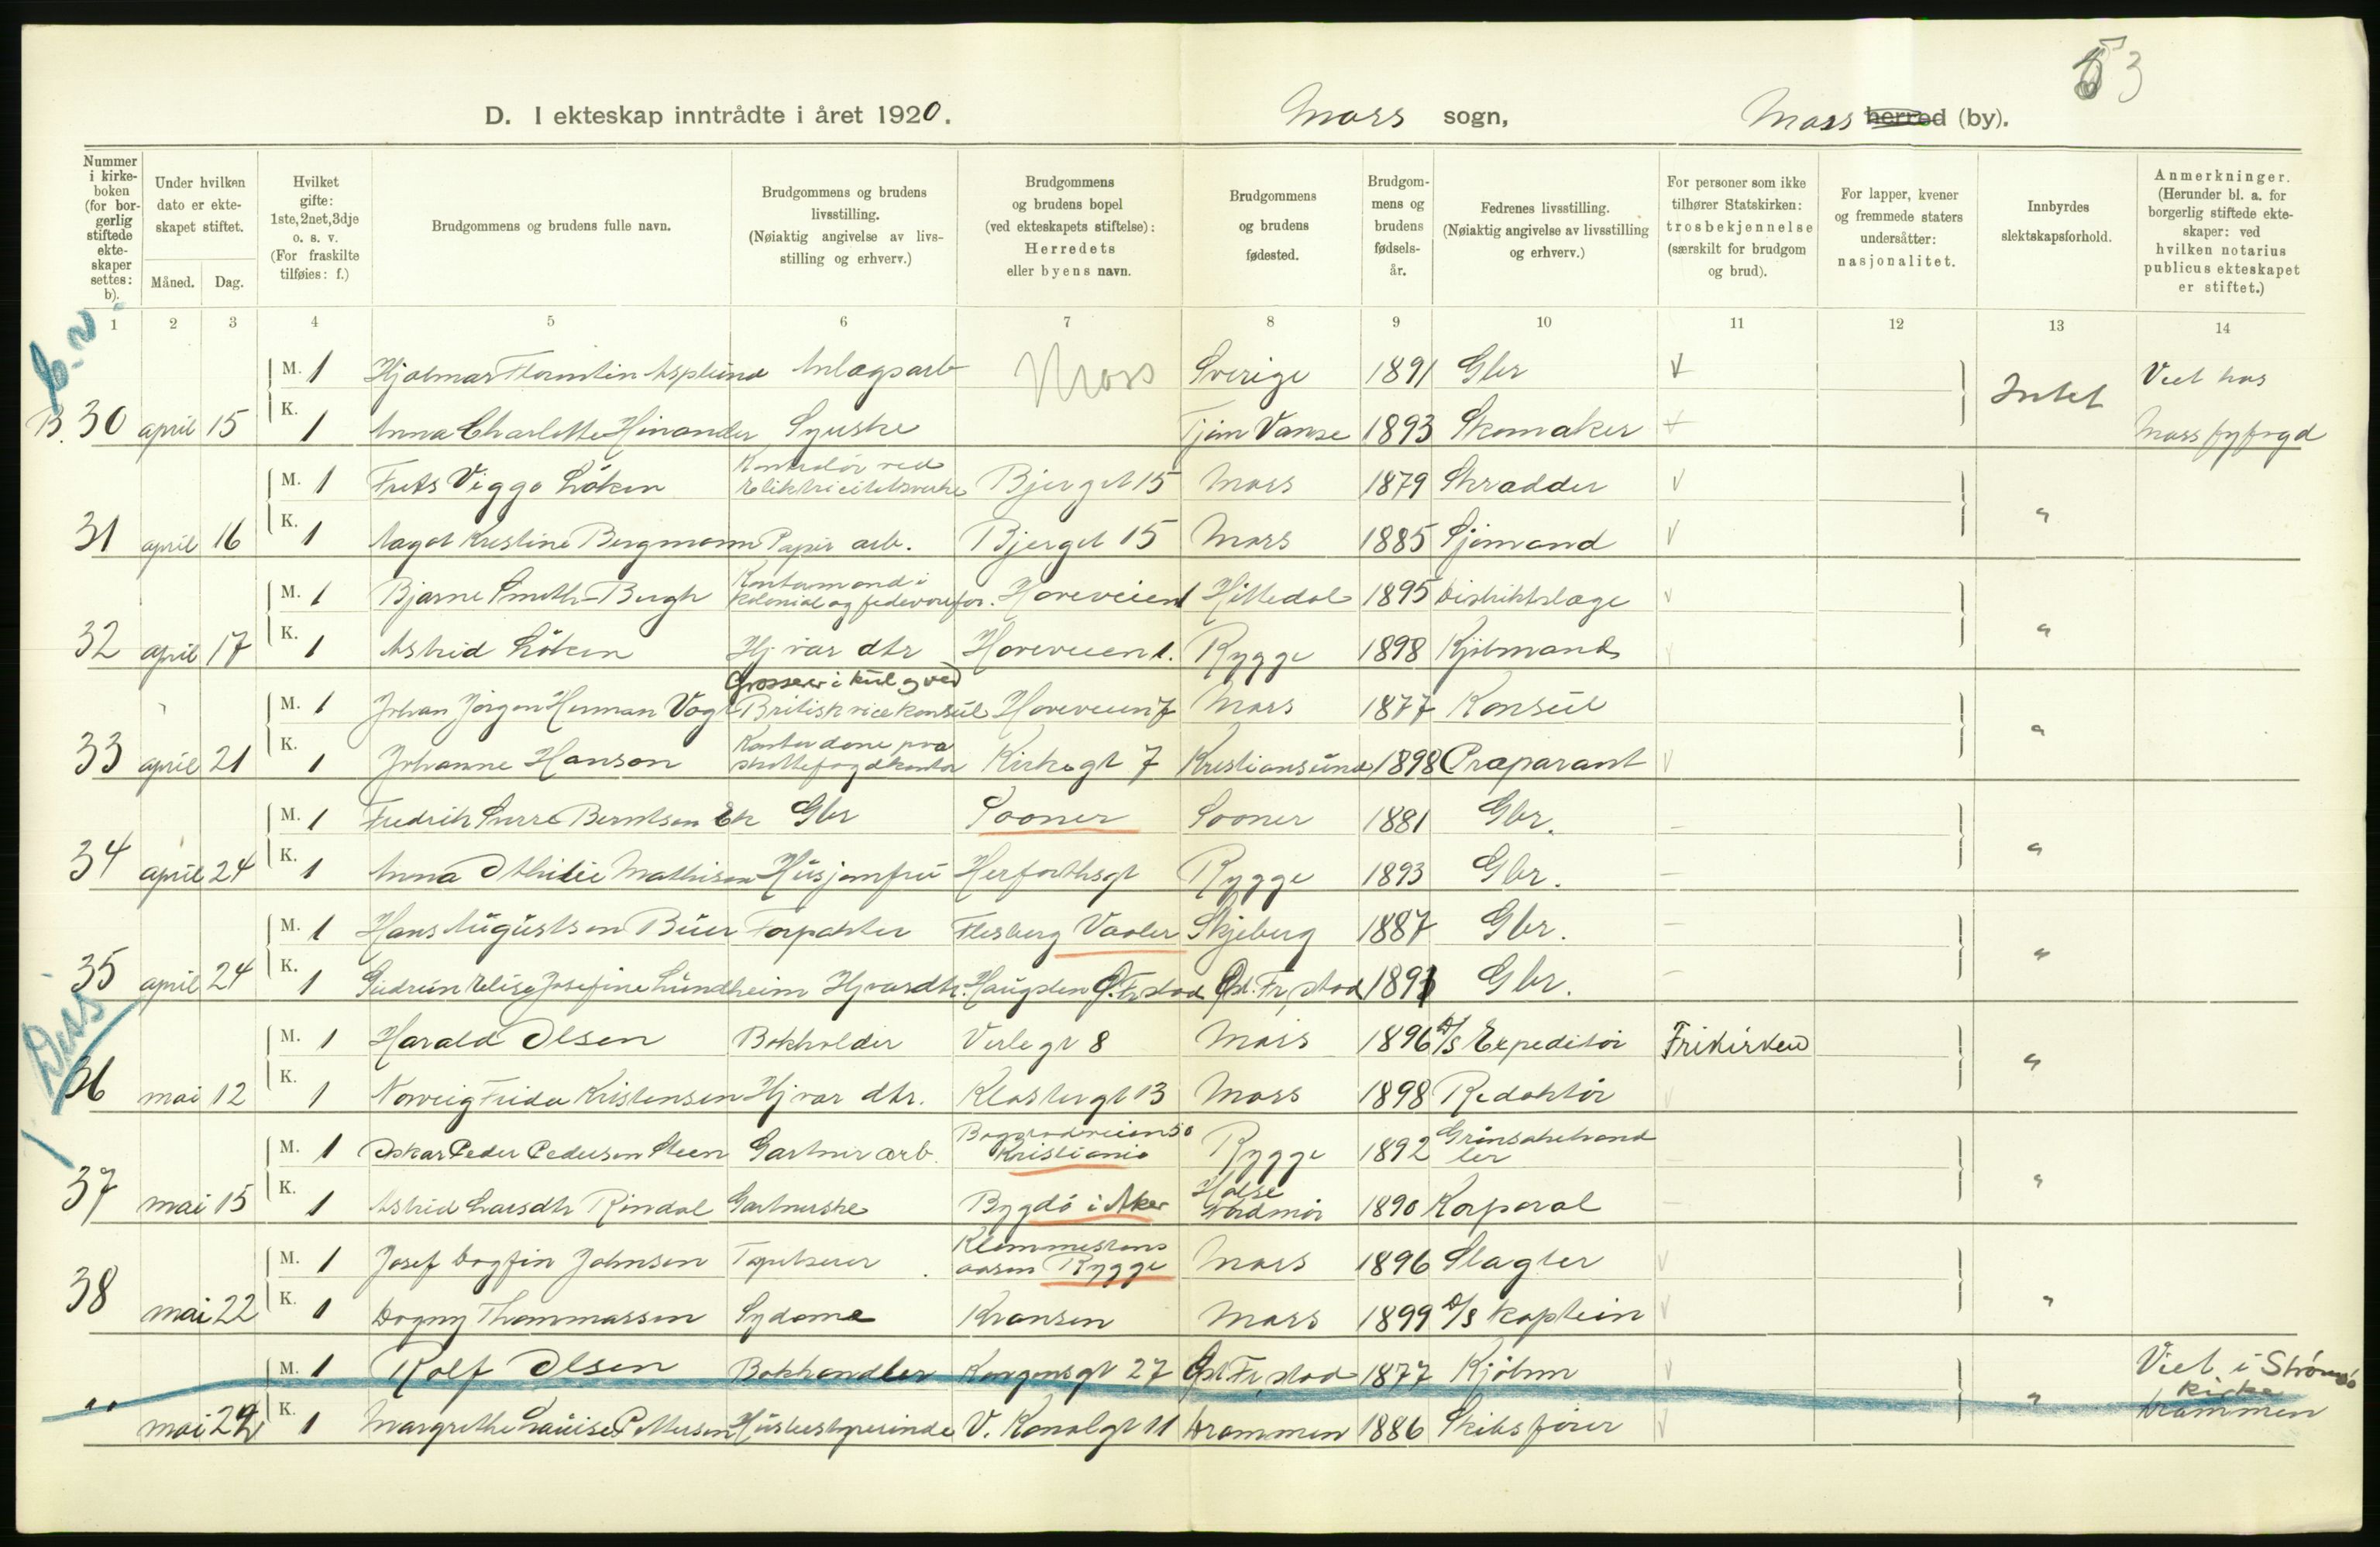 53
D. I ekteskap inntrådte i året 1920. Moss sogn, Moss herred (by).
Nummer i kirkeboken (for borgerlig stiftede ekteskaper settes: b).
Under hvilken dato er ekteskapet stiftet.
Måned. Dag.
Hvilket gifte: 1ste, 2net, 3dje o. s. v. (For fraskilte tilføies: f.)
Brudgommens og brudens fulle navn.
Brudgommens og brudens livsstilling. (Nøiaktig angivelse av livsstilling og erhverv.)
Brudgommens og brudens bopel (ved ekteskapets stiftelse): Herredets eller byens navn.
Brudgommens og brudens fødested.
Brudgommens og brudens fødselsår.
Fedrenes livsstilling. (Nøiaktig angivelse av livsstilling og erhverv.)
For personer som ikke tilhører Statskirken: trosbekjennelse (særskilt for brudgom og brud).
For lapper, kvener og fremmede staters undersåtter: nasjonalitet.
Innbyrdes slektskapsforhold.
Anmerkninger. (Herunder bl. a. for borgerlig stiftede ekteskaper: ved hvilken notarius publicus ekteskapet er stiftet.)
1 2 3 4 5 6 7 8 9 10 11 12 13 14
M. 1 Hjalmar Florentin Asplund Anlægsarb Moss Sverige 1891 Gbr Viet hos
B. 30 april 15 K. 1 Anna Charlotte Hinander Syerske Vanse 1893 Skomaker Intet Moss byfogd
M. 1 Frits Viggo Löken Kontrolør ved Elektricitetsverket Bjerget 15 Moss 1879 Skrædder
31 april 16 K. 1 Aagot Kristine Bergmann Papir arb. Bjerget 15 Moss 1885 Sjömand "
M. 1 Bjarne Smith-Bergh Kontormand i kolonial og fedevarefor. Höieveien 1 Hittedal 1895 Distriktslæge
32 april 17 K. 1 Astrid Löken Hj vær dtr Höieveien 1. Rygge 1898 Kjöbmand "
M. 1 Johan Jörgen Herman Vogt Grosserer i kul og ved Britisk vicekonsul Höieveien 7 Moss 1877 Konsul
33 april 21 K. 1 Johanne Hanson Kontordame paa skattefogdkontor Kirkegt 7 Kristiansund 1898 Præparant "
M. 1 Fredrik Berntsen Ek Gbr Sooner Sooner 1881 Gbr.
34 april 24 K. 1 Anna Othilie Mathisen Husjomfru Herforthsgt Rygge 1893 Gbr. "
M. 1 Hans Augustsen Buer Forpakter Flesberg Vaaler Skjeberg 1887 Gbr.
35 april 24 K. 1 Gudrun Elise Josefine Lundheim Hj værdtr. Haugsten Ø. Fr.stad Øst. Fr.stad 1891 Gbr. "
Diss
M. 1 Harald Olsen Bokholder Verlegt 8 Moss 1896 D/S Expeditör Frikirken
36 mai 12 K. 1 Norveig Frida Kristensen Hj vær dtr. Klostergt 13 Moss 1898 Redaktör "
M. 1 Oskar Peder Pedersen Steen Gartner arb. Bogstadveien 50 Kristiania Rygge 1892 Grönsakhandler
37 mai 15 K. 1 Astrid Larsdtr Rindal Gartnerske Bygdö i Aker Halse Nordmör 1890 Korporal "
M. 1 Josef Dagfin Johnsen Tapetserer Klommestensaasen Rygge Moss 1896 Slagter
38 mai 22 K. 1 Dagny Thommassen Sydame Kransen Moss 1899 D/S kaptein "
M. 1 Rolf Olsen Bokhandler Kongensgt 27 Øst. Fr.stad 1877 Kjöbm Viet i Strömsö kirke
" mai 22 K. 1 Margrethe Louise Pettersen Husbestyrerinde V. Kanalgt 11 Drammen 1886 Skibsförer " Drammen